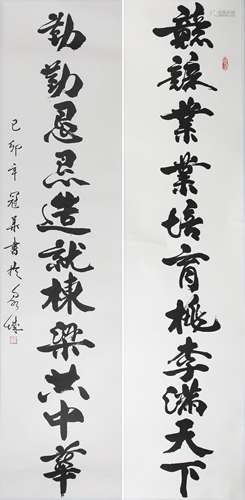 兢兢業業培育桃李滿天下
勤勤恳恳造就棟梁共中華
己卯年冠華書於泉城